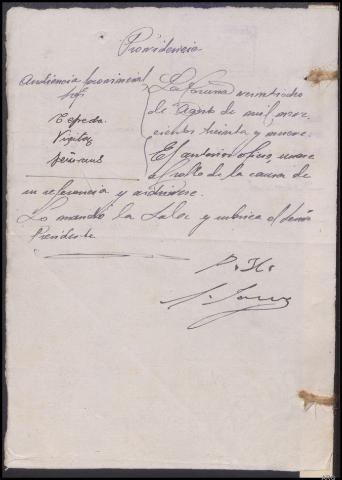 Providencia
Audiencia provincial
Sres
Tejeda
La Coruña veintiocho
de Agosto de mil nove-
cientos treinta y nueve.
El anterior oficio, unase
al rollo de la causa de
su referencia y archivese.
Lo mandó la Sala y rubrica el Señor
Presidente